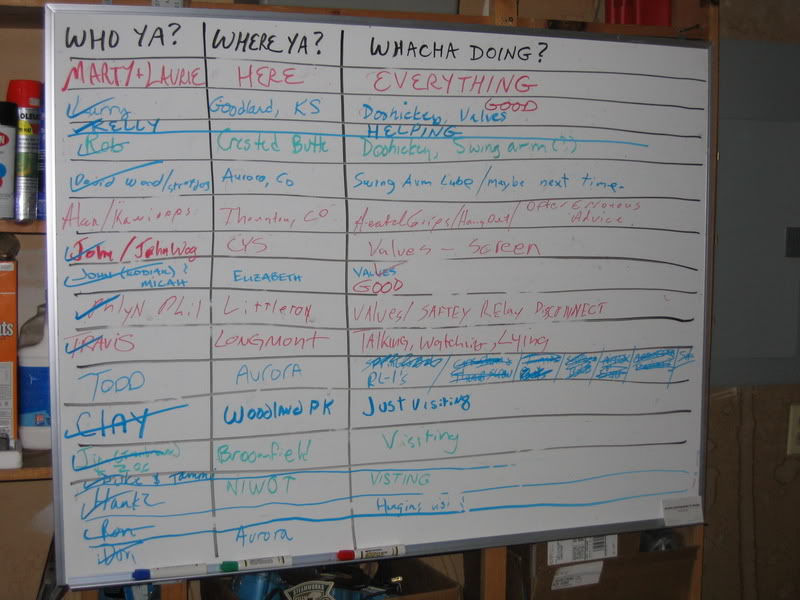 WHO YA? WHERE YA? WHACHA DOING?
MARTY + LAURIE HERE EVERYTHING
Larry Goodland, KS Doohickey, Valves GOOD
KELLY HELPING
Rob Crested Butte Doohickey, Swing arm (?)
David Wood/ Aurora, Co Swing Arm Lube/Maybe next time.
Alan/ Thornton, CO Heated Grips/Hang Out/ Offer Erroneous Advice.
John/JohnWog CYS Valves - Screen
JOHN (KODIAK) & MICAH ELIZABETH VALVES GOOD
Phil Littleton VALVES/ SAFTEY RELAY DISCONNECT
TRAVIS LONGMONT Talking, Watching, Lying
TODD Aurora
RL-1's
CLAY Woodland PK Just Visiting
Jim Broomfield Visiting
& Tammy NIWOT VISTING
Hank
Ron Aurora
Don